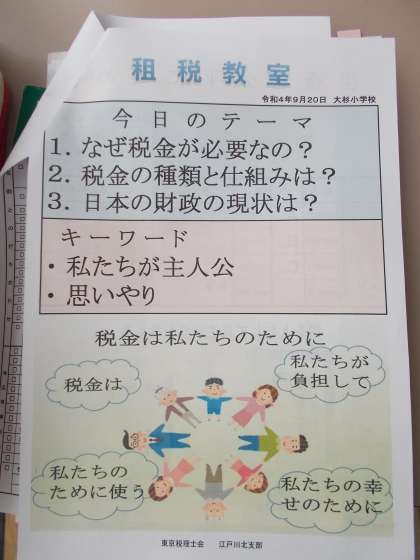 租税教室
令和4年9月20日 大杉小学校
今日のテーマ
1. なぜ税金が必要なの？
2. 税金の種類と仕組みは？
3. 日本の財政の現状は？
キーワード
・私たちが主人公
・思いやり
税金は私たちのために
税金は
私たちが
負担して
私たちの
ために使う
私たちの幸
せのために
東京税理士会 江戸川北支部